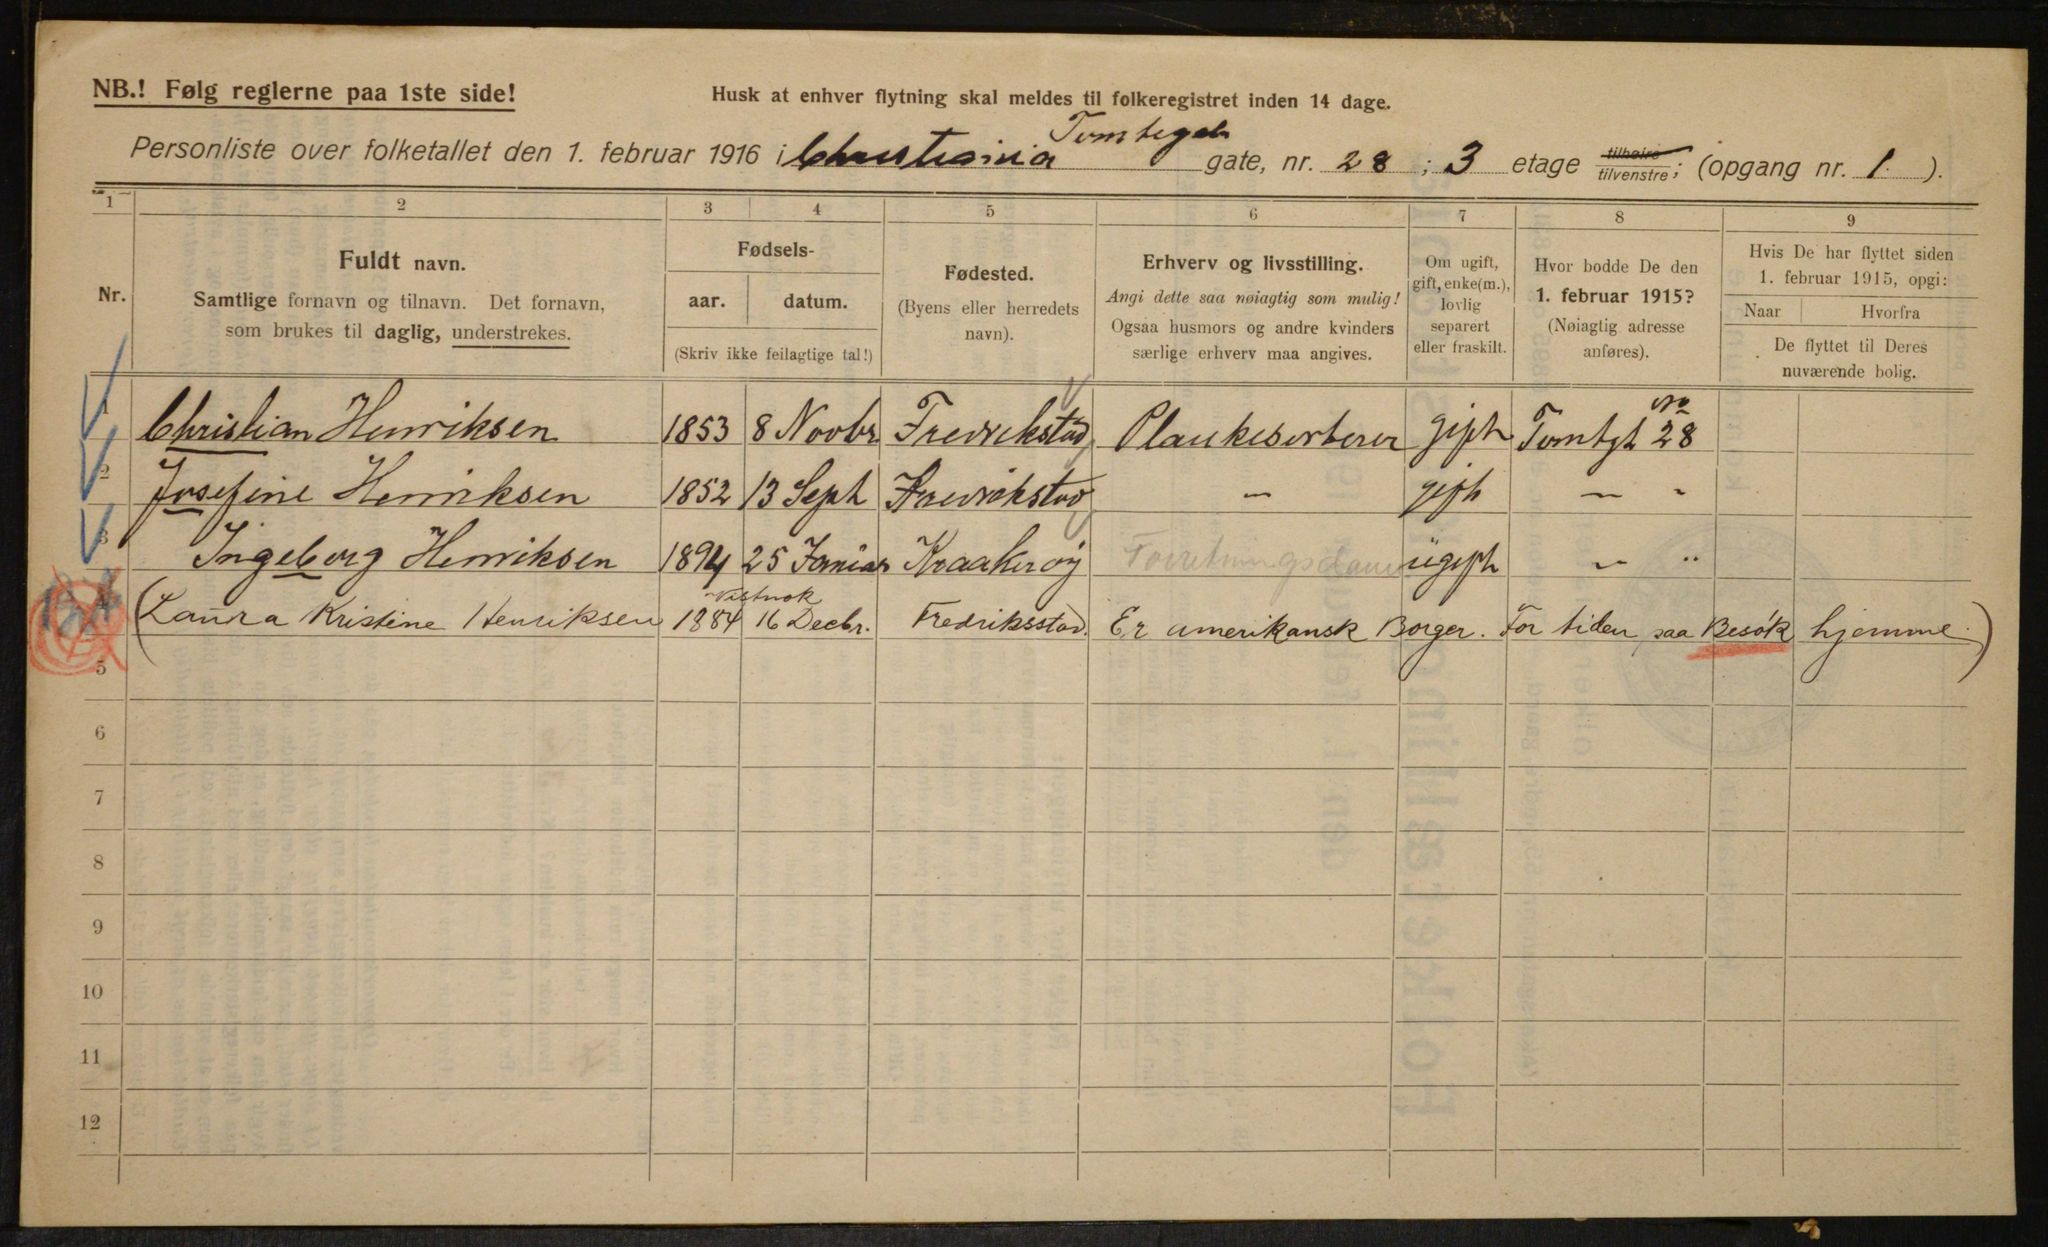 NB.! Følg reglerne paa 1ste side!
Husk at enhver flytning skal meldes til folkeregistret inden 14 dage.
Tomtegab
Personliste over folketallet den 1. februar 1916 i Christiania gate, nr. 28 ; 3 etage tilhøire tilvenstre; (opgang nr. 1. ).
1 2 3 4 5 6 7 8 9
Nr.
Fuldt navn.
Samtlige fornavn og tilnavn. Det fornavn,
som brukes til daglig, understrekes.
Fødsels-
aar. datum.
(Skriv ikke feilagtige tal!)
Fødested.
(Byens eller herredets
navn).
Erhverv og livsstilling.
Angi dette saa nøiagtig som mulig!
Ogsaa husmors og andre kvinders
særlige erhverv maa angives.
Om ugift,
gift, enke(m.),
lovlig
separert
eller fraskilt.
Hvor bodde De den
1. februar 1915?
(Nøiagtig adresse
anføres).
Hvis De har flyttet siden
1. februar 1915, opgi:
Naar Hvorfra
De flyttet til Deres
nuværende bolig.
1 Christian Henriksen 1853 8 Novbr Fredrikstad Plankesorterer gift Tomtgt No 28
2 Josefine Henriksen 1852 13 Sept Fredrikstad — gift — "
3 Ingeborg Henriksen 1894 25 Januar Kraakerøy Forretningsdame ugift — "
(Laura Kristine Henriksen 1884 Vistnok 16 Decbr. Fredriksstad. Er amerikansk Borger. For tiden paa Besøk hjemme.)
5
6
7
8
9
10
11
12